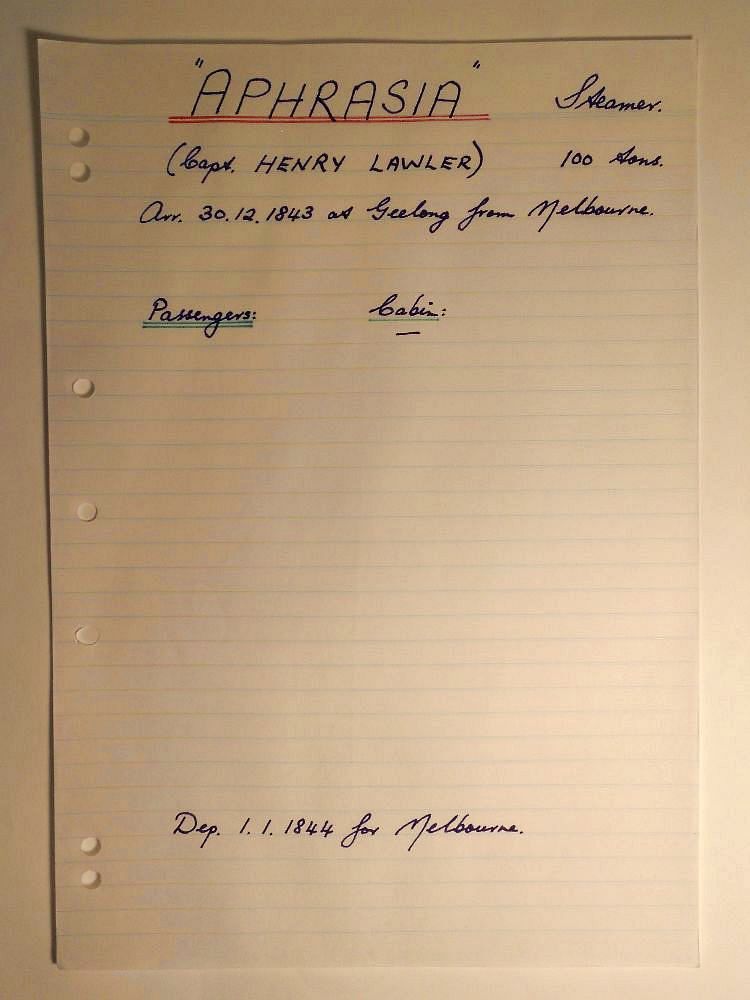 "APHRASIA" Steamer.
(Capt. HENRY LAWLER) 100 tons.
Arr. 30.12.1843 at Geelong from Melbourne.
Passengers: Cabin:
—
Dep. 1.1.1844 for Melbourne.